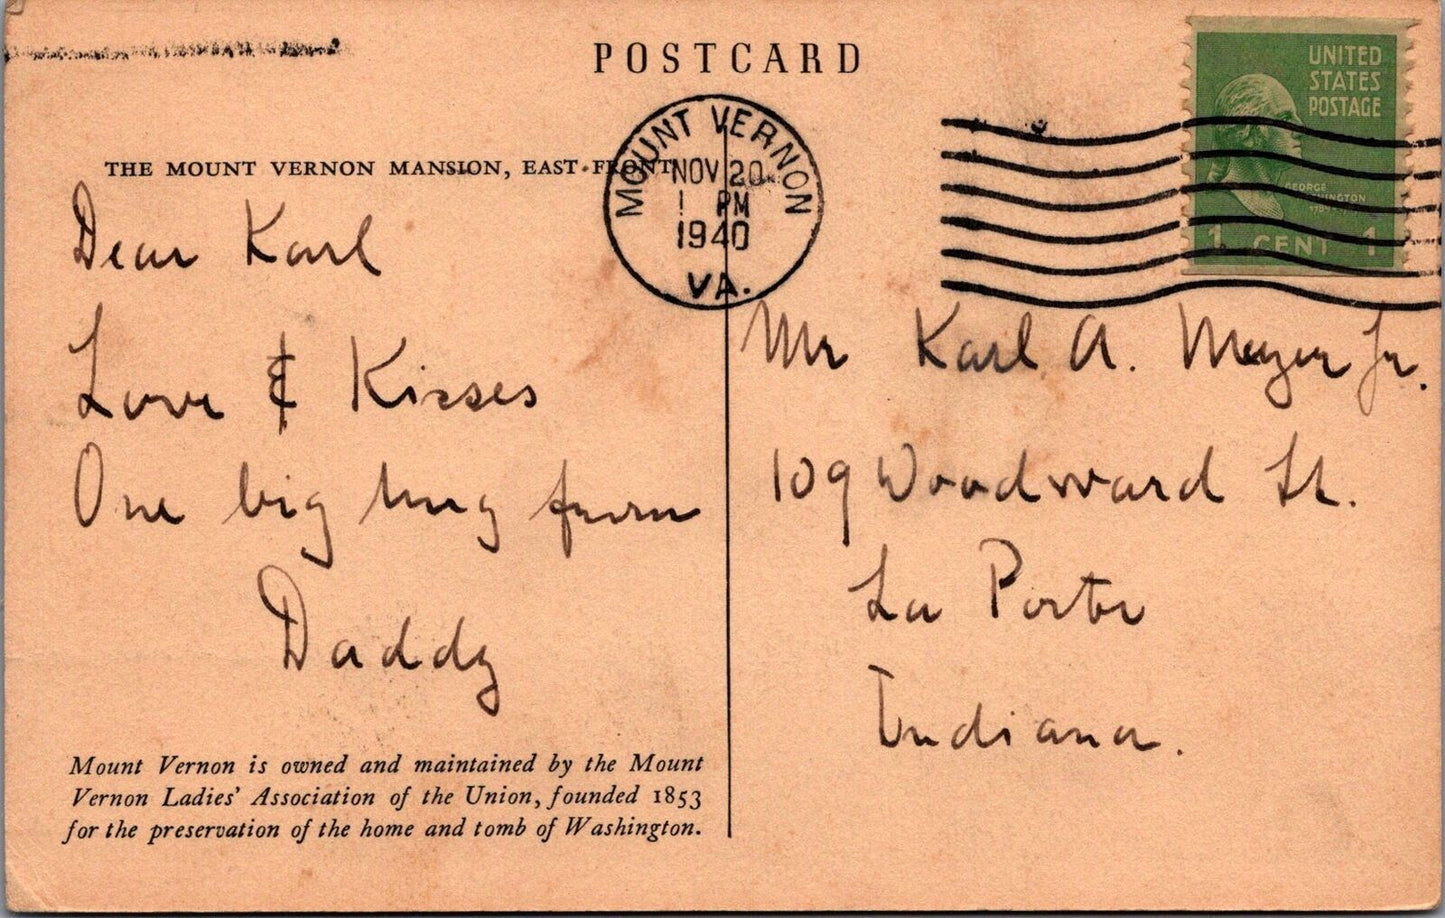 POSTCARD
UNITED
STATES
POSTAGE
GEORGE
1 CENT 1
MOUNT VERNON
NOV 20
1 PM
1940
VA.
THE MOUNT VERNON MANSION, EAST FRONT
Dear Karl
Love & Kisses
One big hug from
Daddy
Mr Karl A. Meyer Jr.
109 Woodward St.
La Porte
Indiana.
Mount Vernon is owned and maintained by the Mount
Vernon Ladies' Association of the Union, founded 1853
for the preservation of the home and tomb of Washington.